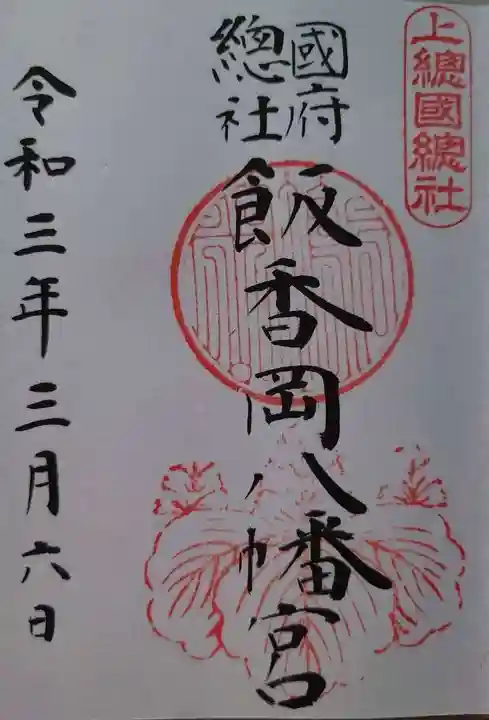 上總國總社
國府
總社
飯香岡八幡宮
令和三年三月六日